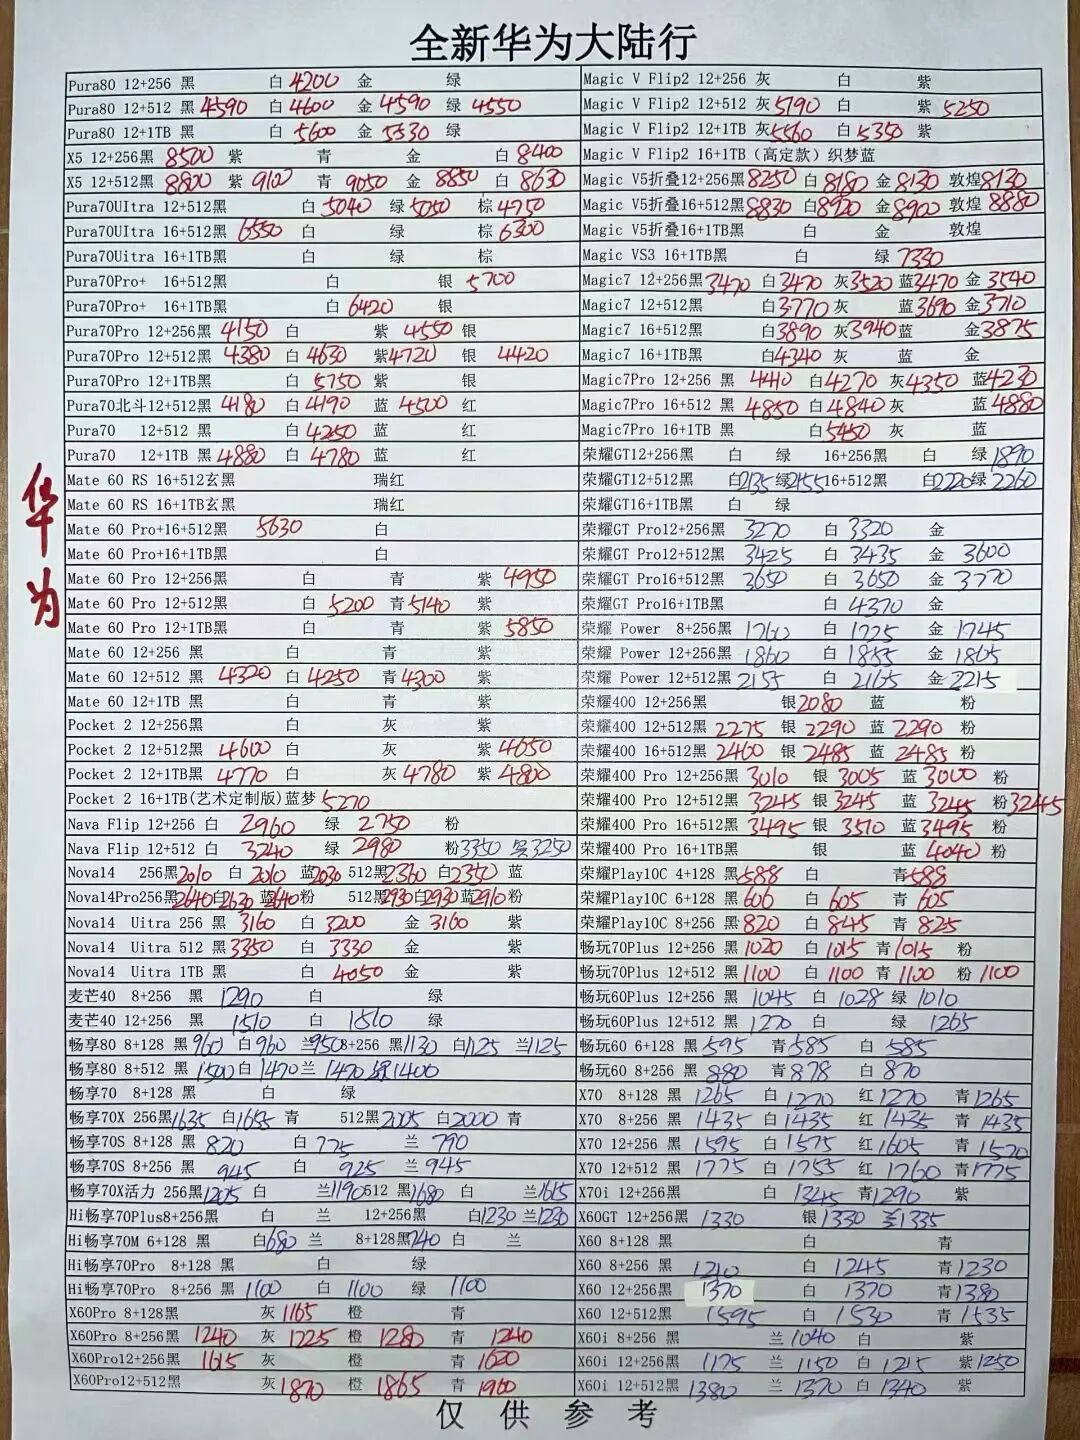 全新华为大陆行
Pura80 12+256 黑 白 4200 金 绿
Pura80 12+512 黑 4590 白 4600 金 4590 绿 4550
Pura80 12+1TB 黑 白 5600 金 5530 绿
X5 12+256黑 8500 紫 青 金 白 8400
X5 12+512黑 8800 紫 9100 青 9050 金 8850 白 8630
Pura70UItra 12+512黑 白 5040 绿 5050 棕 4750
Pura70UItra 16+512黑 6550 白 绿 棕 6300
Pura70Uitra 16+1TB黑 白 绿 棕
Pura70Pro+ 16+512黑 白 银 5700
Pura70Pro+ 16+1TB黑 白 6420 银
Pura70Pro 12+256黑 4150 白 紫 4550 银
Pura70Pro 12+512黑 4380 白 4630 紫 4720 银 4420
Pura70Pro 12+1TB黑 白 5750 紫 银
Pura70北斗12+512黑 4180 白 4190 蓝 4500 红
Pura70 12+512 黑 白 4250 蓝 红
Pura70 12+1TB 黑 4880 白 4780 蓝 红
Mate 60 RS 16+512玄黑 瑞红
Mate 60 RS 16+1TB玄黑 瑞红
Mate 60 Pro+16+512黑 5630 白
Mate 60 Pro+16+1TB黑 白
Mate 60 Pro 12+256黑 白 青 紫 4950
Mate 60 Pro 12+512黑 白 5200 青 5140 紫
Mate 60 Pro 12+1TB黑 白 青 紫 5850
Mate 60 12+256 黑 白 青 紫
Mate 60 12+512 黑 4320 白 4250 青 4300 紫
Mate 60 12+1TB 黑 白 青 紫
Pocket 2 12+256黑 白 灰 紫
Pocket 2 12+512黑 4600 白 灰 紫 4650
Pocket 2 12+1TB黑 4770 白 灰 4780 紫 4800
Pocket 2 16+1TB(艺术定制版)蓝梦 5270
Nava Flip 12+256 白 2960 绿 2750 粉
Nava Flip 12+512 白 3240 绿 2980 粉 3350 3250
Nova14 256黑 2010 白 2010 蓝 2030 512黑 2360 白 2350 蓝
Nova14Pro256黑 2640 白 2630 蓝 2640 粉 512黑 2930 白 2930 蓝 2910 粉
Nova14 Uitra 256 黑 3160 白 3200 金 3160 紫
Nova14 Uitra 512 黑 3350 白 3330 金 紫
Nova14 Uitra 1TB 黑 白 4050 金 紫
麦芒40 8+256 黑 1290 白 绿
麦芒40 12+256 黑 1510 白 1510 绿
畅享80 8+128 黑 960 白 960 兰 950 8+256 黑 1130 白 1125 兰 1125
畅享80 8+512 黑 1500 白 1470 兰 1470 绿 1400
畅享70 8+128 黑 白 绿
畅享70X 256黑 1635 白 1655 青 512黑 2005 白 2000 青
畅享70S 8+128 黑 820 白 775 兰 790
畅享70S 8+256 黑 945 白 925 兰 945
畅享70X活力 256黑 1205 白 兰 1190 512 黑 1680 白 兰 1615
Hi畅享70Plus8+256黑 白 兰 12+256黑 白 1230 兰 1230
Hi畅享70M 6+128 黑 白 680 兰 8+128黑 740 白 兰
Hi畅享70Pro 8+128 黑 白 绿
Hi畅享70Pro 8+256 黑 1100 白 1100 绿 1100
X60Pro 8+128黑 灰 1165 橙 青
X60Pro 8+256黑 1240 灰 1225 橙 1280 青 1240
X60Pro12+256黑 1615 灰 橙 青 1620
X60Pro12+512黑 灰 1870 橙 1865 青 1960
Magic V Flip2 12+256 灰 白 紫
Magic V Flip2 12+512 灰 5190 白 紫 5250
Magic V Flip2 12+1TB 灰 5560 白 5350 紫
Magic V Flip2 16+1TB（高定款）织梦蓝
Magic V5折叠12+256黑 8250 白 8180 金 8130 敦煌 8130
Magic V5折叠16+512黑 8830 白 8920 金 8900 敦煌 8880
Magic V5折叠16+1TB黑 白 金 敦煌
Magic VS3 16+1TB黑 白 绿 7330
Magic7 12+256黑 3470 白 3470 灰 3520 蓝 3470 金 3540
Magic7 12+512黑 白 3770 灰 蓝 3690 金 3710
Magic7 16+512黑 白 3890 灰 3940 蓝 金 3875
Magic7 16+1TB黑 白 4340 灰 蓝 金
Magic7Pro 12+256 黑 4410 白 4270 灰 4350 蓝 4230
Magic7Pro 16+512 黑 4850 白 4840 灰 蓝 4880
Magic7Pro 16+1TB 黑 白 5450 灰 蓝
荣耀GT12+256黑 白 绿 16+256黑 白 绿 1890
荣耀GT12+512黑 白 2135 绿 2155 16+512黑 白 2220 绿 2260
荣耀GT16+1TB黑 白 绿
荣耀GT Pro12+256黑 3270 白 3320 金
荣耀GT Pro12+512黑 3425 白 3435 金 3600
荣耀GT Pro16+512黑 3650 白 3650 金 3770
荣耀GT Pro16+1TB黑 白 4370 金
荣耀 Power 8+256黑 1760 白 1725 金 1745
荣耀 Power 12+256黑 1860 白 1855 金 1865
荣耀 Power 12+512黑 2155 白 2165 金 2215
荣耀400 12+256黑 银 2080 蓝 粉
荣耀400 12+512黑 2275 银 2290 蓝 2290 粉
荣耀400 16+512黑 2460 银 2485 蓝 2485 粉
荣耀400 Pro 12+256黑 3010 银 3005 蓝 3000 粉
荣耀400 Pro 12+512黑 3245 银 3245 蓝 3245 粉 3245
荣耀400 Pro 16+512黑 3495 银 3510 蓝 3495 粉
荣耀400 Pro 16+1TB黑 银 蓝 4040 粉
荣耀Play10C 4+128 黑 588 白 青 588
荣耀Play10C 6+128 黑 606 白 605 青 605
荣耀Play10C 8+256 黑 820 白 845 青 825
畅玩70Plus 12+256 黑 1020 白 1015 青 1015 粉
畅玩70Plus 12+512 黑 1100 白 1100 青 1100 粉 1100
畅玩60Plus 12+256 黑 1045 白 1028 绿 1010
畅玩60Plus 12+512 黑 1270 白 绿 1265
畅玩60 6+128 黑 595 青 585 白 585
畅玩60 8+256 黑 880 青 878 白 870
X70 8+128 黑 1265 白 1270 红 1270 青 1265
X70 8+256 黑 1435 白 1435 红 1435 青 1435
X70 12+256 黑 1595 白 1575 红 1605 青 1570
X70 12+512 黑 1775 白 1755 红 1760 青 1775
X70i 12+256黑 白 1345 青 1290 紫
X60GT 12+256黑 1330 银 1330 兰 1335
X60 8+128 黑 白 青
X60 8+256 黑 1210 白 1245 青 1230
X60 12+256 黑 1370 白 1370 青 1380
X60 12+512黑 1595 白 1530 青 1535
X60i 8+256 黑 兰 1040 白 紫
X60i 12+256黑 1175 兰 1150 白 1215 紫 1250
X60i 12+512黑 1380 兰 1370 白 1340 紫
华为
仅供参考